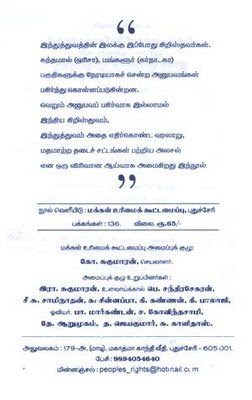 “
இந்துத்துவத்தின் இலக்கு இப்போது கிறிஸ்தவர்கள்.
கந்தமால் (ஒரிசா), மங்களூர் (கர்நாடகா)
பகுதிகளுக்கு நேரடியாகச் சென்ற அனுபவங்கள்
பகிர்ந்து கொள்ளப்படுகின்றன.
வெறும் அனுபவப் பகிர்வாக இல்லாமல்
இந்திய கிறிஸ்துவம்.
இந்துத்துவம் அதை எதிர்கொண்ட வரலாறு,
மதமாற்ற தடைச் சட்டங்கள் பற்றிய அலசல்
என ஒரு விரிவான ஆய்வாக அமைகிறது இந்நூல்
”
நூல் வெளியீடு : மக்கள் உரிமைக் கூட்டமைப்பு, புதுச்சேரி
பக்கங்கள் : 136. விலை. ரூ.65/-
மக்கள் உரிமைக் கூட்டமைப்பு அமைப்புக் குழு:
கோ. சுகுமாரன், செயலாளர்.
அமைப்புக் குழு உறுப்பினர்கள் :
இரா. சுகுமாரன், உளவாய்க்கால் பெ. சந்திரசேகரன்,
சீ.சு. சாமிநாதன், சு. சின்னப்பா, கி. கண்ணன், கி. பாலாஜி,
ஓவியர். பா. மார்கண்டன், ச. கோவிந்தசாமி,
தே. ஆறுமுகம், த. ஜெயகுமார், சு. காளிதாஸ்.
அலுவலகம் : 179-அ, (மாடி), மகாத்மா காந்தி வீதி, புதுச்சேரி - 605 001.
பேசி : 9894054640
மின்னஞ்சல் : peoples_rights@hotmail.com